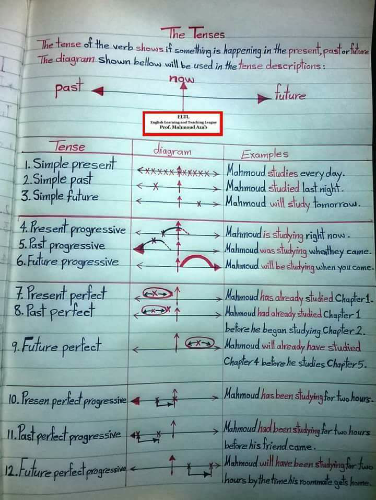 The Tenses
The tense of the verb shows if something is happening in the present, past or future
The diagram shown bellow will be used in the tense descriptions:
now
past
future
ELTL
English Learning and Teaching League
Prof. Mahmoud
Tense diagram Examples
1. Simple present Mahmoud studies every day.
2. Simple past Mahmoud studied last night.
3. Simple future Mahmoud will study tomorrow.
4. Present progressive Mahmoud is studying right now.
5. Past progressive Mahmoud was studying when they came.
6. Future progressive Mahmoud will be studying when you come.
7. Present perfect Mahmoud has already studied Chapter 1.
8. Past perfect Mahmoud had already studied Chapter 1
before he began studying Chapter 2.
9. Future perfect Mahmoud will already have studied
Chapter 4 before he studies Chapter 5.
10. Presen perfect progressive Mahmoud has been studying for two hours.
11. Past perfect progressive Mahmoud had been studying for two hours
before his friend came.
12. Future perfect progressive Mahmoud will have been studying for two
hours by the time his roommate gets home.